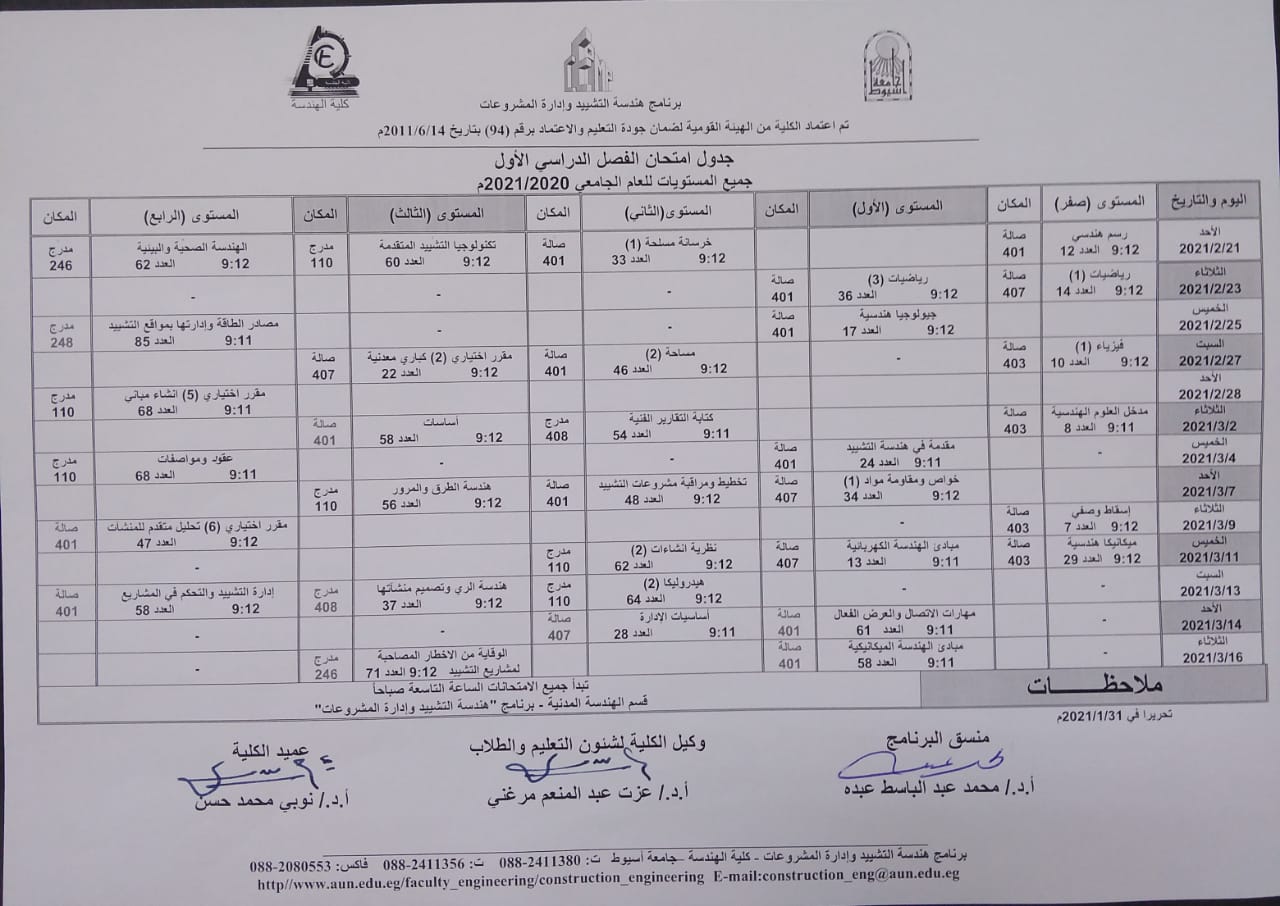 كلية الهندسة
جامعة أسيوط
برنامج هندسة التشييد وإدارة المشروعات
تم اعتماد الكلية من الهيئة القومية لضمان جودة التعليم والاعتماد برقم (94) بتاريخ 2011/6/14م
جدول امتحان الفصل الدراسي الأول
جميع المستويات للعام الجامعي 2021/2020م
اليوم والتاريخ المستوى (صفر) المكان المستوى (الأول) المكان المستوى(الثاني) المكان المستوى (الثالث) المكان المستوى (الرابع) المكان
الأحد رسم هندسي صالة خرسانة مسلحة (1) صالة تكنولوجيا التشييد المتقدمة مدرج الهندسة الصحية والبيئية مدرج
2021/2/21 9:12 العدد 12 401 9:12 العدد 33 401 9:12 العدد 60 110 9:12 العدد 62 246
الثلاثاء رياضيات (1) صالة رياضيات (3) صالة - - -
2021/2/23 9:12 العدد 14 407 9:12 العدد 36 401
الخميس جيولوجيا هندسية صالة - - مصادر الطاقة وإدارتها بمواقع التشييد مدرج
2021/2/25 9:12 العدد 17 401 9:11 العدد 85 248
السبت فيزياء (1) صالة - مساحة (2) صالة مقرر اختياري (2) كباري معدنية صالة
2021/2/27 9:12 العدد 10 403 9:12 العدد 46 401 9:12 العدد 22 407
الأحد مقرر اختياري (5) انشاء مباني مدرج
2021/2/28 9:11 العدد 68 110
الثلاثاء مدخل العلوم الهندسية صالة كتابة التقارير الفنية مدرج أساسات صالة
2021/3/2 9:11 العدد 8 403 9:11 العدد 54 408 9:12 العدد 58 401
الخميس - مقدمة في هندسة التشييد صالة - - عقود ومواصفات مدرج
2021/3/4 9:11 العدد 24 401 9:11 العدد 68 110
الأحد خواص ومقاومة مواد (1) صالة تخطيط ومراقبة مشروعات التشييد صالة هندسة الطرق والمرور مدرج
2021/3/7 9:12 العدد 34 407 9:12 العدد 48 401 9:12 العدد 56 110
الثلاثاء إسقاط وصفي صالة - مقرر اختياري (6) تحليل متقدم للمنشات صالة
2021/3/9 9:12 العدد 7 403 9:12 العدد 47 401
الخميس ميكانيكا هندسية صالة مبادئ الهندسة الكهربائية صالة نظرية انشاءات (2) مدرج -
2021/3/11 9:12 العدد 29 403 9:11 العدد 13 407 9:12 العدد 62 110
السبت - - هيدروليكا (2) مدرج هندسة الري وتصميم منشآتها مدرج إدارة التشييد والتحكم في المشاريع صالة
2021/3/13 9:12 العدد 64 110 9:12 العدد 37 408 9:12 العدد 58 401
الأحد - مهارات الاتصال والعرض الفعال صالة أساسيات الإدارة صالة - -
2021/3/14 9:11 العدد 61 401 9:11 العدد 28 407
الثلاثاء - مبادئ الهندسة الميكانيكية صالة الوقاية من الاخطار المصاحبة مدرج -
2021/3/16 9:11 العدد 58 401 لمشاريع التشييد 9:12 العدد 71 246
ملاحظـــــات
تبدأ جميع الامتحانات الساعة التاسعة صباحاً
قسم الهندسة المدنية - برنامج "هندسة التشييد وإدارة المشروعات"
تحريرا في 2021/1/31م
منسق البرنامج وكيل الكلية لشئون التعليم والطلاب عميد الكلية
أ.د./ محمد عبد الباسط عبده أ.د./ عزت عبد المنعم مرغني أ.د./ نوبي محمد حسن
برنامج هندسة التشييد وإدارة المشروعات - كلية الهندسة - جامعة أسيوط ت: 2411380-088 ت: 2411356-088 فاكس: 2080553-088
http//www.aun.edu.eg/faculty_engineering/construction_engineering E-mail:construction_eng@aun.edu.eg